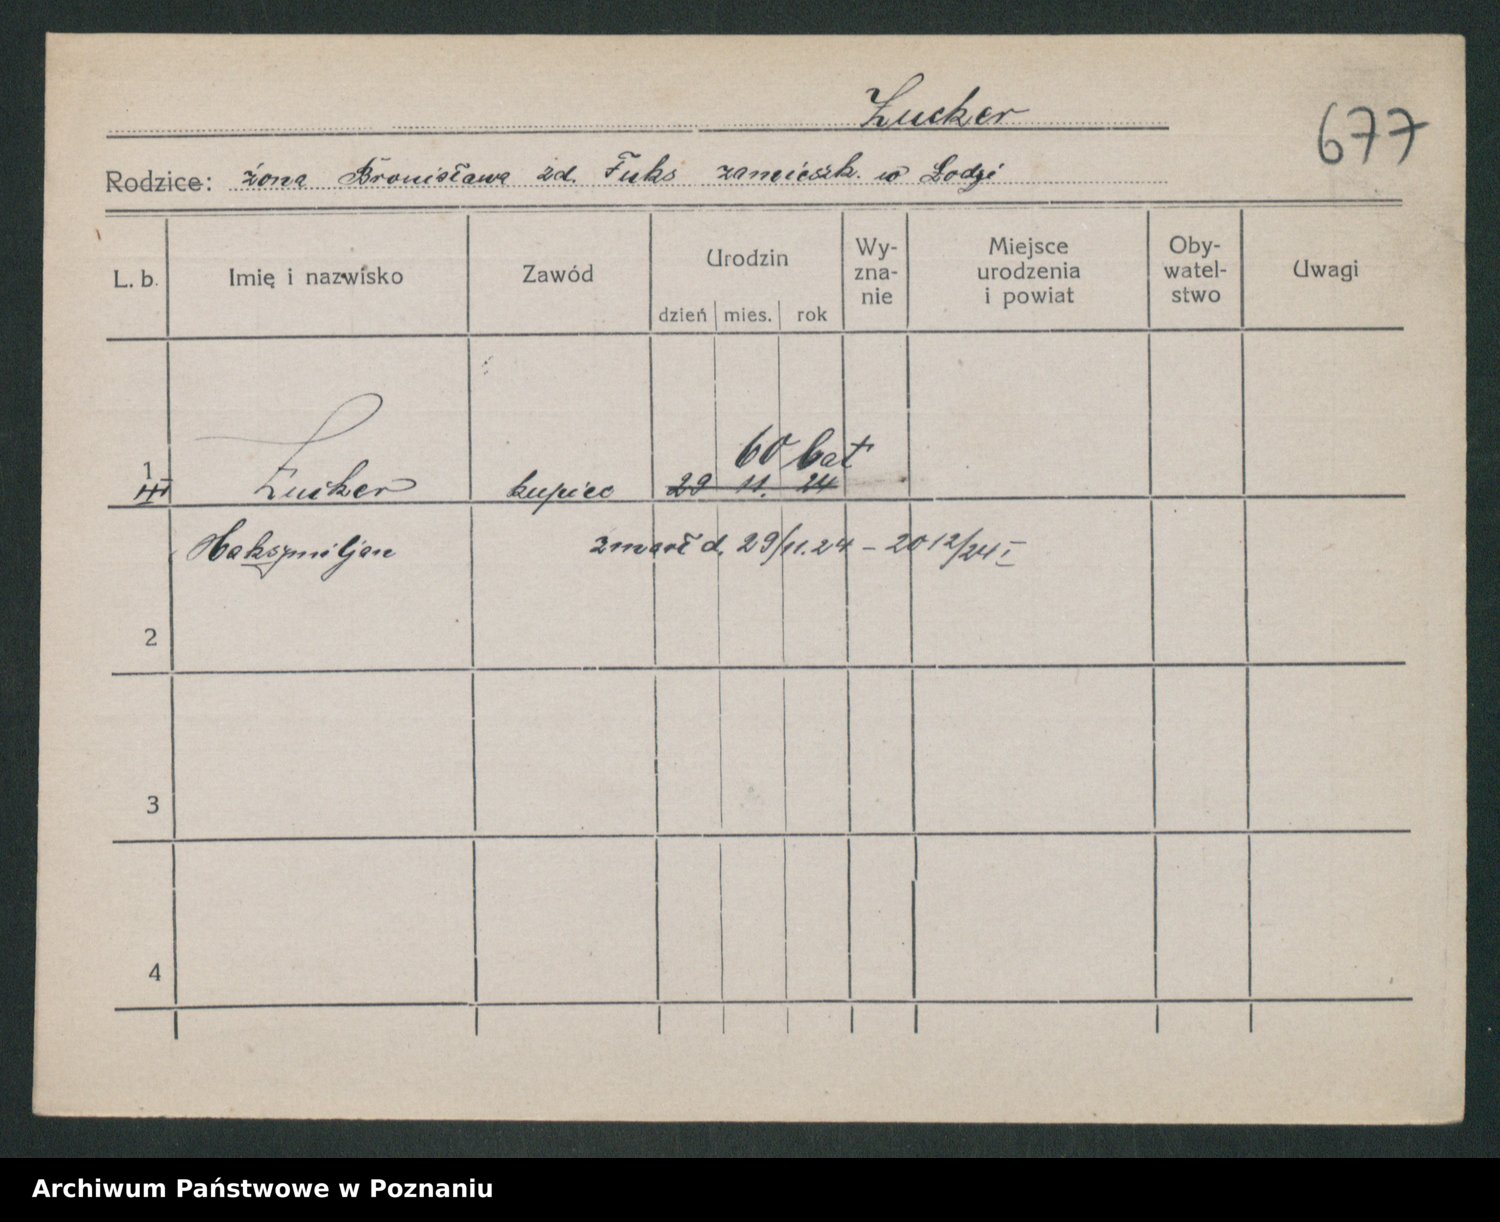 Zucker
677
Rodzice: żona Bronisława zd. Fuks zamieszk. w Łodzi
L. b. Imię i nazwisko Zawód Urodzin dzień mies. rok Wy-zna-nie Miejsce urodzenia i powiat Oby-watel-stwo Uwagi
60 lat
1 Zucker kupiec 29 11. 24
Maksymiljan zmarł d. 29/11.24 – 20 12/24 I
2
3
4
Archiwum Państwowe w Poznaniu